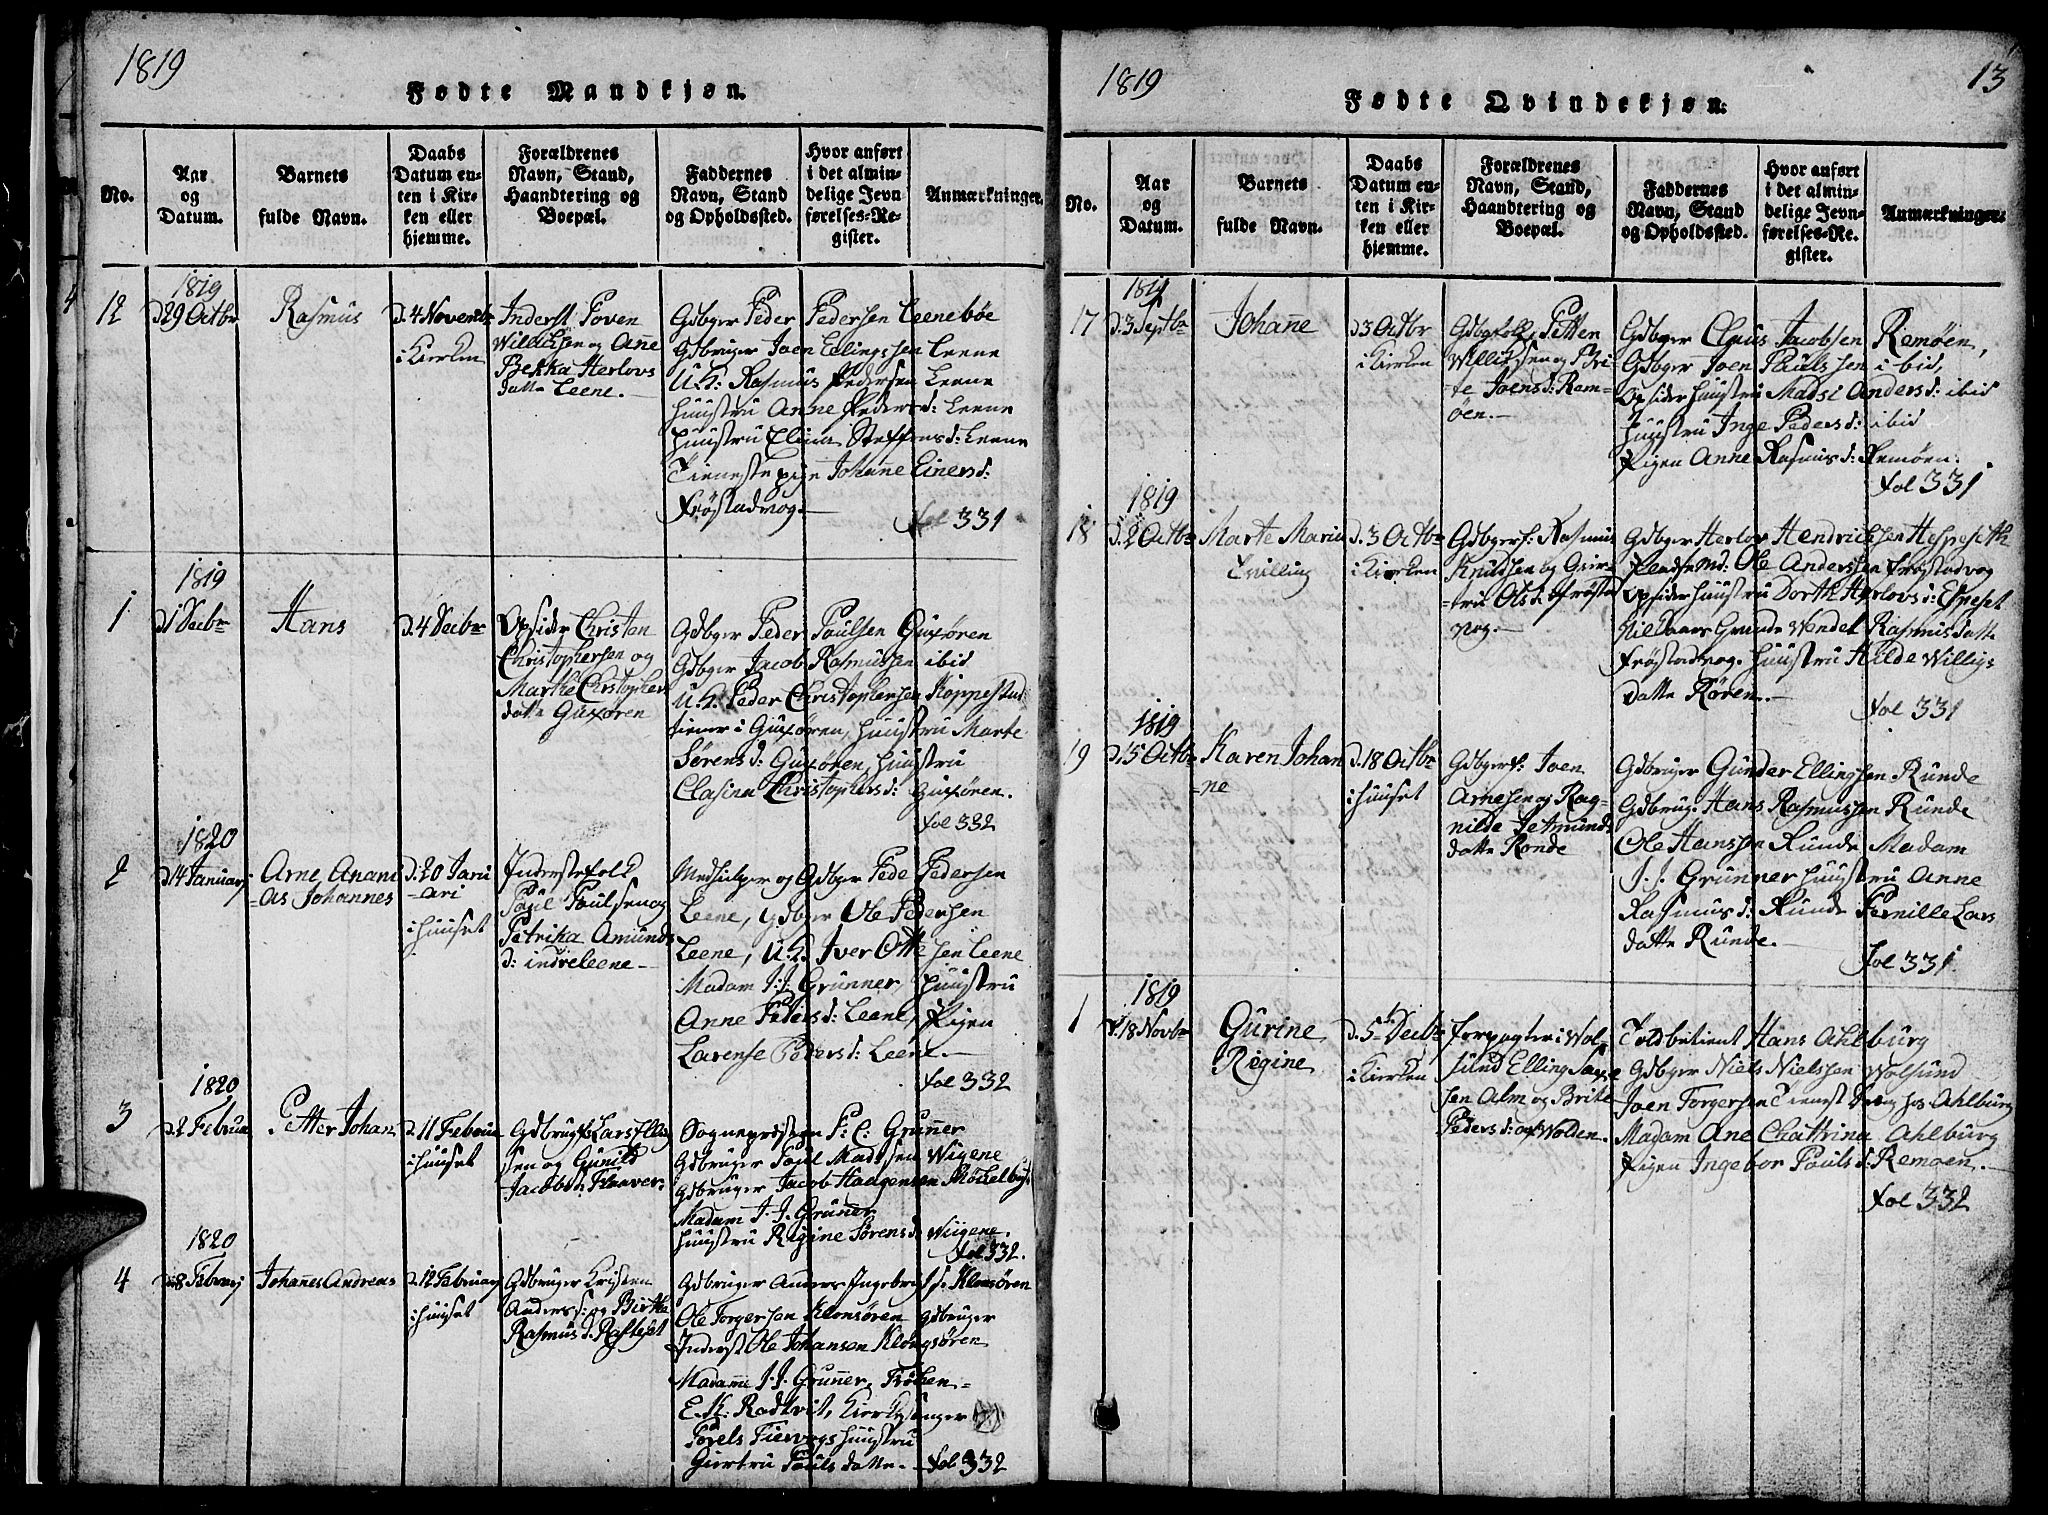 1819
Fødte Mandkjøn.
No.
Aar og Datum.
Barnets fulde Navn.
Daabs Datum enten i Kirken eller hjemme.
Forældrenes Navn, Stand, Haandtering og Boepæl.
Faddernes Navn, Stand og Opholdssted.
Hvor anført i det almindelige Jevnførelses-Register.
Anmærkninger.
12
1819
d29 Octbr
Rasmus
d. 4 Novembr
i Kierken
Inderst Poven
Willichsen og Anne
Bekka Herlovs
datte Leene.
Gdbger Peder Pedersen Leenebøe
Gdbruger Joen Ellingssen Leene
U.K: Rasmus Pedersen Leene
Huustru Anne Peders d: Leene
Huustru Elina Steffens d: Leene
Tienestepige Johanne Einers d:
Frøstadvog.
Fol 331
1
1819
d1 Decbr
Hans
d. 4 Decbr
Opsider Christen
Christophersen og
Marthe Christopher
datte Guxøren
Gdbger Peder Paulsen Guxøren
Gdbger Jacob Rasmussen ibid
U.K. Peder Christophersen Koppestad
tiener i Guxøren, Huustru Marte
Sørens d: Guxøren, Huustru
Clasina Christophers d: Guxøren.
Fol 332
2
1820
d. 14 Januarj
Arne Anani
-as Johannes
d. 20 Janu
-ari
i Huuset
Inderstefolk
Poul Poulsen og
Petrika Amunds
d: indreleene
Medhielper og Gdbger Pede Pedersen
Leene, Gdbger Ole Pedersen
Leene, U.K. Iver Ottesen Leene
Madam J: J: Grunner, Huustru
Anne Peters d: Leene, Pigen
Larense Peders d: Leene.
Fol 332
3
1820
d. 2 Februa
Petter Johan
d. 11 Februa
i Huuset
Gdbrugf: Lars Ella
sen og Gunild
Jacobs d:
Sognepræsten F: C: Grunner
Gdbruger Poul Madssen Wigene
Gdbruger Jacob Haagensen
Madam J. J. Grunner
Huustru Regine Sørens d: Wiigene.
Fol 332.
4
1820
d. 8 Febrarj
Johanes Andreas
d. 12 Februarj
i Huuset
Gdbruger Kristen
Anders s: og Birthe
Rasmus d. Rasteset
Gdbruger Anders Ingebregt s: Klonsøren
Ole Torgersen Klonsøren Gdbruger
Inderst Ole Johansen Klongsøren
Madame J. J. Grunner, Frøken
E. K: Rodtvit, Kierkesanger
Huustru
Giertru Pouls datte.
Fol 332
1819
13
Fødte Qvindekjøn.
No.
Aar og Datum.
Barnets fulde Navn.
Daabs Datum enten i Kirken eller hjemme.
Forældrenes Navn, Stand, Haandtering og Boepæl.
Faddernes Navn, Stand og Opholdssted.
Hvor anført i det almindelige Jevnførelses-Register.
Anmærkninger.
17
1819
d. 3 Septbr
Johanne
d 3 Octbr
i Kierken
Gdbgfolk: Petter
Willichsen og Bri
te Joens d: Rem-
øen.
Gdbger Claus Jacobsen Remøen,
Gdbger Joen Paulssen ibid,
Opsider Huustru Madsi Anders d: ibid
Huustru Inge Peders d: ibid
Pigen Anne Rasmus d: Remøen.
Fol 331
18
1819
d. 2 Octbr
Marte Marie
Tvilling
d. 3 Octbr
i Kierken
Gdbgerf: Rasmus
Knudsen og Giær-
-tru Ols d: Frøstad
vog.
Gdbger Herlov Hendrichsen Hespeseth
Ole Anderssen Frøstadvog
Opsider Huustru Dorthe Herlovs d: Espeset
Wendel Rasmusdatte
Frøstadvog. Huustru Hilde Willigs
datte Røren.
Fol 331
19
1819
d. 15 Octbr
Karen Johan
-ne
d. 18 Octbr
i Huuset
Gdbgerf: Joen
Arnesen og Rag-
nilde Jetmunds
datte Ronde
Gdbruger Gunder Ellingsen Runde
Gdbrug. Hans Rasmussen Runde
Ole Hanssen Runde Madam
J. J. Grunner Huustru Anne
Rasmus d: Runde Pernille Lars
datte Runde.
Fol 331
1
1819
d. 18 Novbr
Gurine
Regine
d. 5 Decbr
i Kierken
Forpagter i Wol-
sund Elling Saxe
sen Alm og Brite
Peders d: af Wolden.
Toldbetient Hans Ahlburg
Gdbger Niels Nielssen Wolsund
Joen Torgersen Tienest Dreng hos Ahlburg
Madam Ane Chattrina Ahlburg
Pigen Ingebor Pouls d: Remøen.
Fol 332